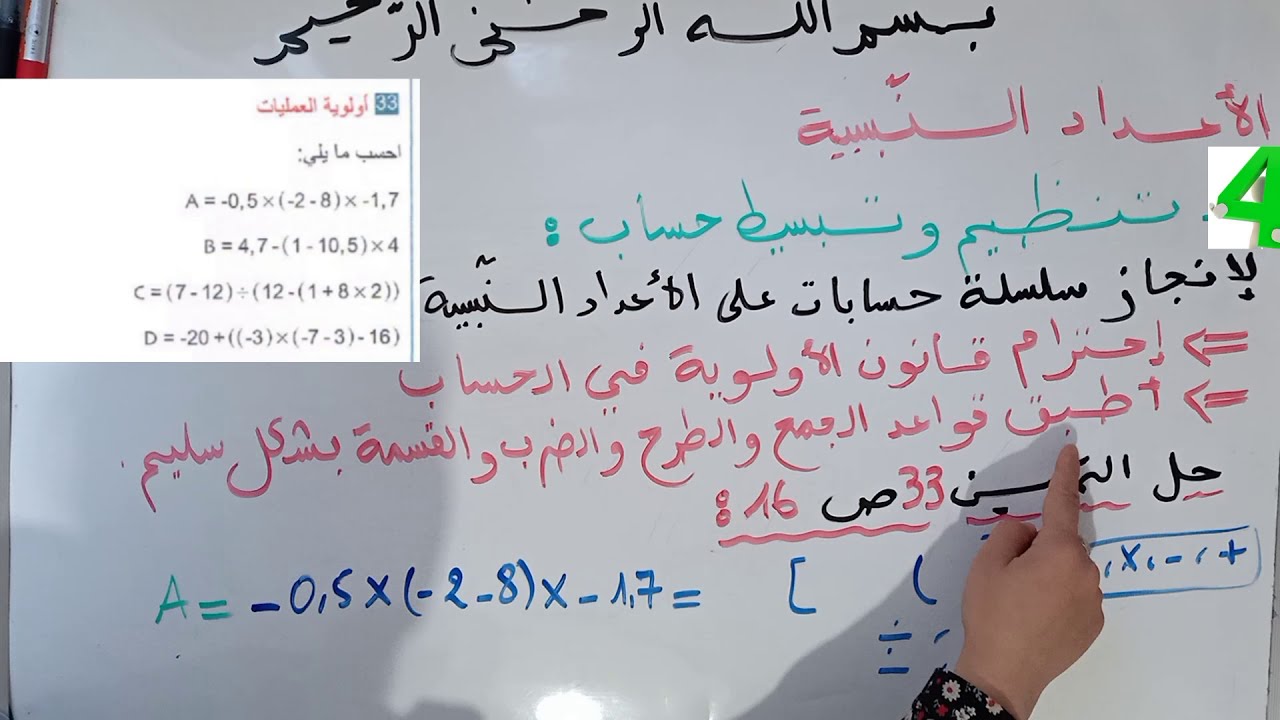 بسم الله الرحمن الرحيم
الأعداد النسبية
4
تنظيم وتبسيط حساب :
لإنجاز سلسلة حسابات على الأعداد النسبية
⇐ إحترام قانون الأولوية في الحساب
⇐ أطبق قواعد الجمع والطرح والضرب والقسمة بشكل سليم .
حل التمرين 33 ص 16 :
+ ، - ، ×
A = - 0,5 × (- 2 - 8) × - 1,7 = [ (
، ÷
33 أولوية العمليات
احسب ما يلي:
A = -0,5 × (-2 - 8) × -1,7
B = 4,7 - (1 - 10,5) × 4
C = (7 - 12) ÷ (12 - (1 + 8 × 2))
D = -20 + ((-3) × (-7 - 3) - 16)